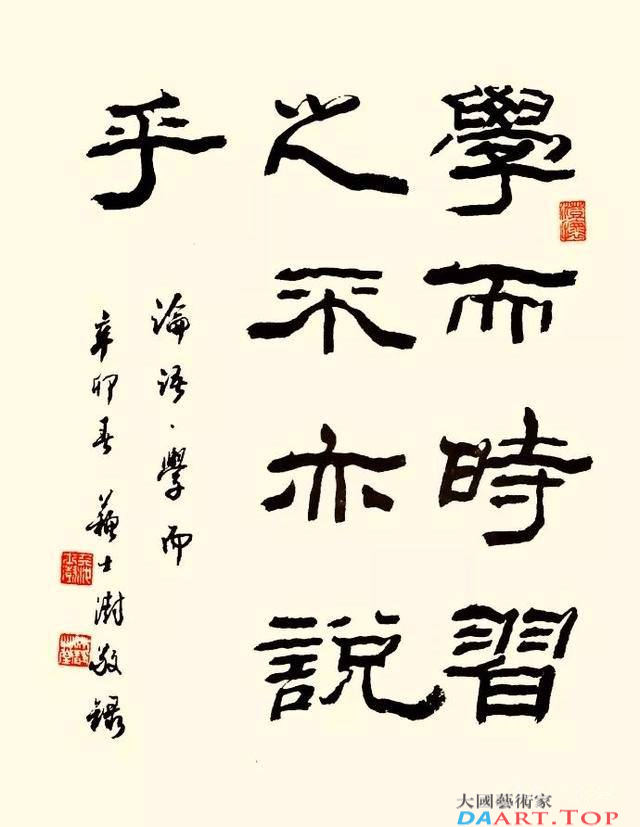 學而時習
之不亦說
乎
論語·學而
辛卯春 蘇士澍敬録
大國藝術家
DAART.TOP